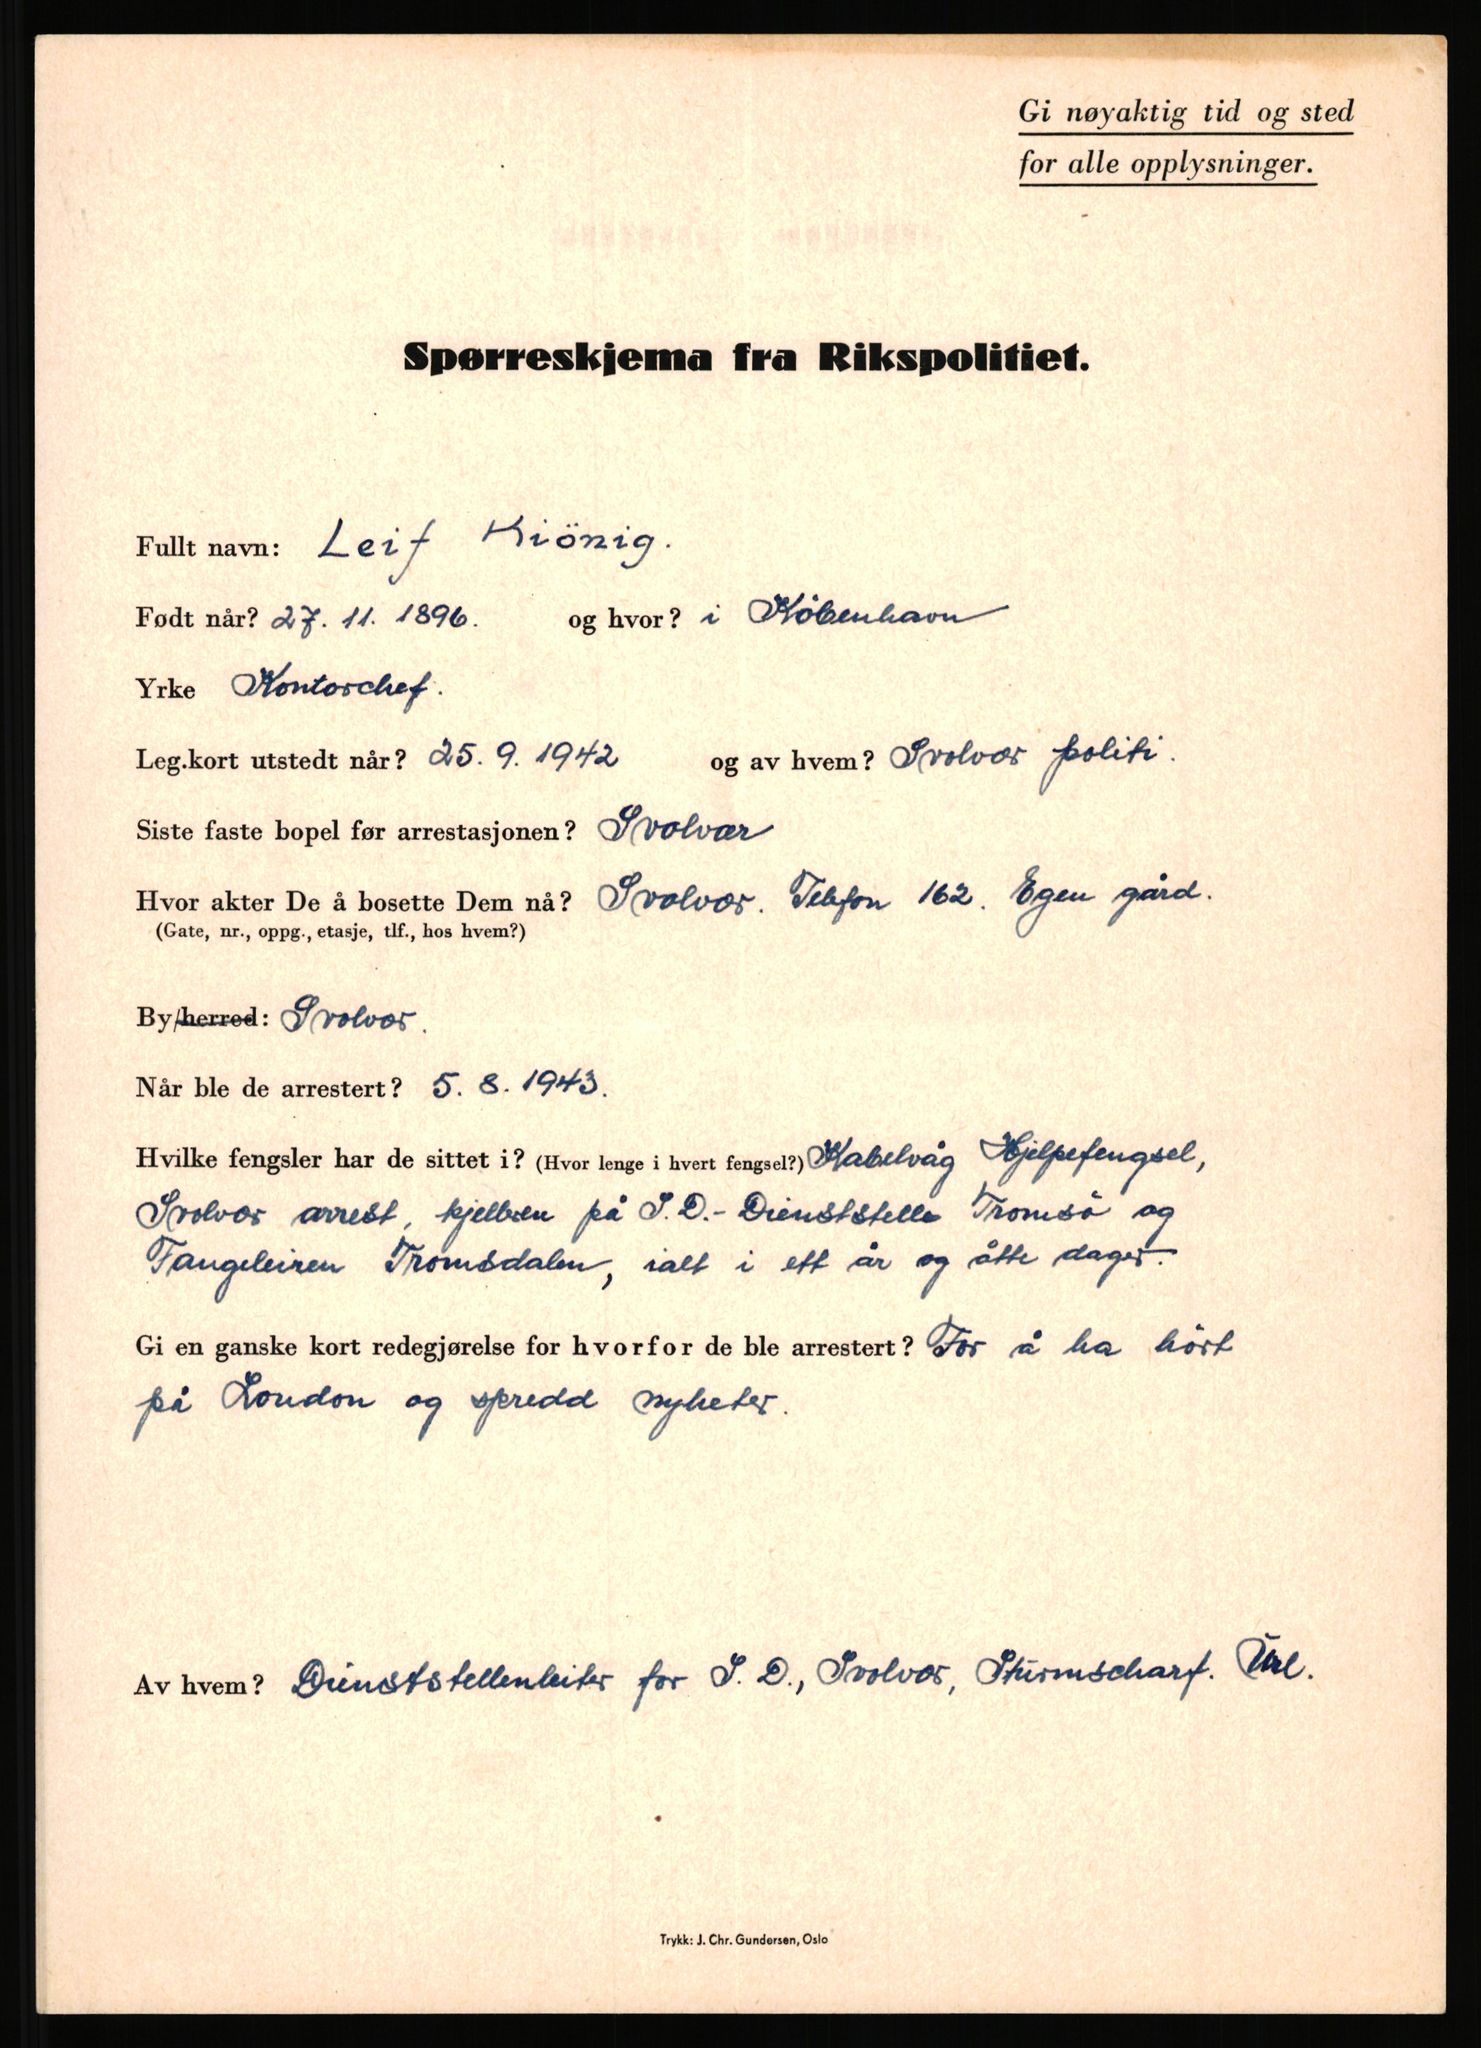 Gi nøyaktig tid og sted
for alle opplysninger.
Spørreskjema fra Rikspolitiet.
Fullt navn: Leif Kiönig.
Født når? 27. 11. 1896. og hvor? i København
Yrke Kontorchef.
Leg.kort utstedt når? 25. 9. 1942 og av hvem? Svolvær politi.
Siste faste bopel før arrestasjonen? Svolvær
Hvor akter De å bosette Dem nå? Svolvær. Telefon 162. Egen gård.
(Gate, nr., oppg., etasje, tlf., hos hvem?)
By/herred: Svolvær.
Når ble de arrestert? 5. 8. 1943.
Hvilke fengsler har de sittet i? (Hvor lenge i hvert fengsel?) Kabelvåg Hjelpefengsel,
Svolvær arrest, kjelleren på S.D.-Dienststelle Tromsö og
Fangeleiren Tromsdalen, ialt i ett år og åtte dager.
Gi en ganske kort redegjørelse for hvorfor de ble arrestert? For å ha hört
på London og spredd nyheter.
Av hvem? Dienststellenleiter for S. D., Svolvær, Sturmscharf.
Trykk: J. Chr. Gundersen, Oslo